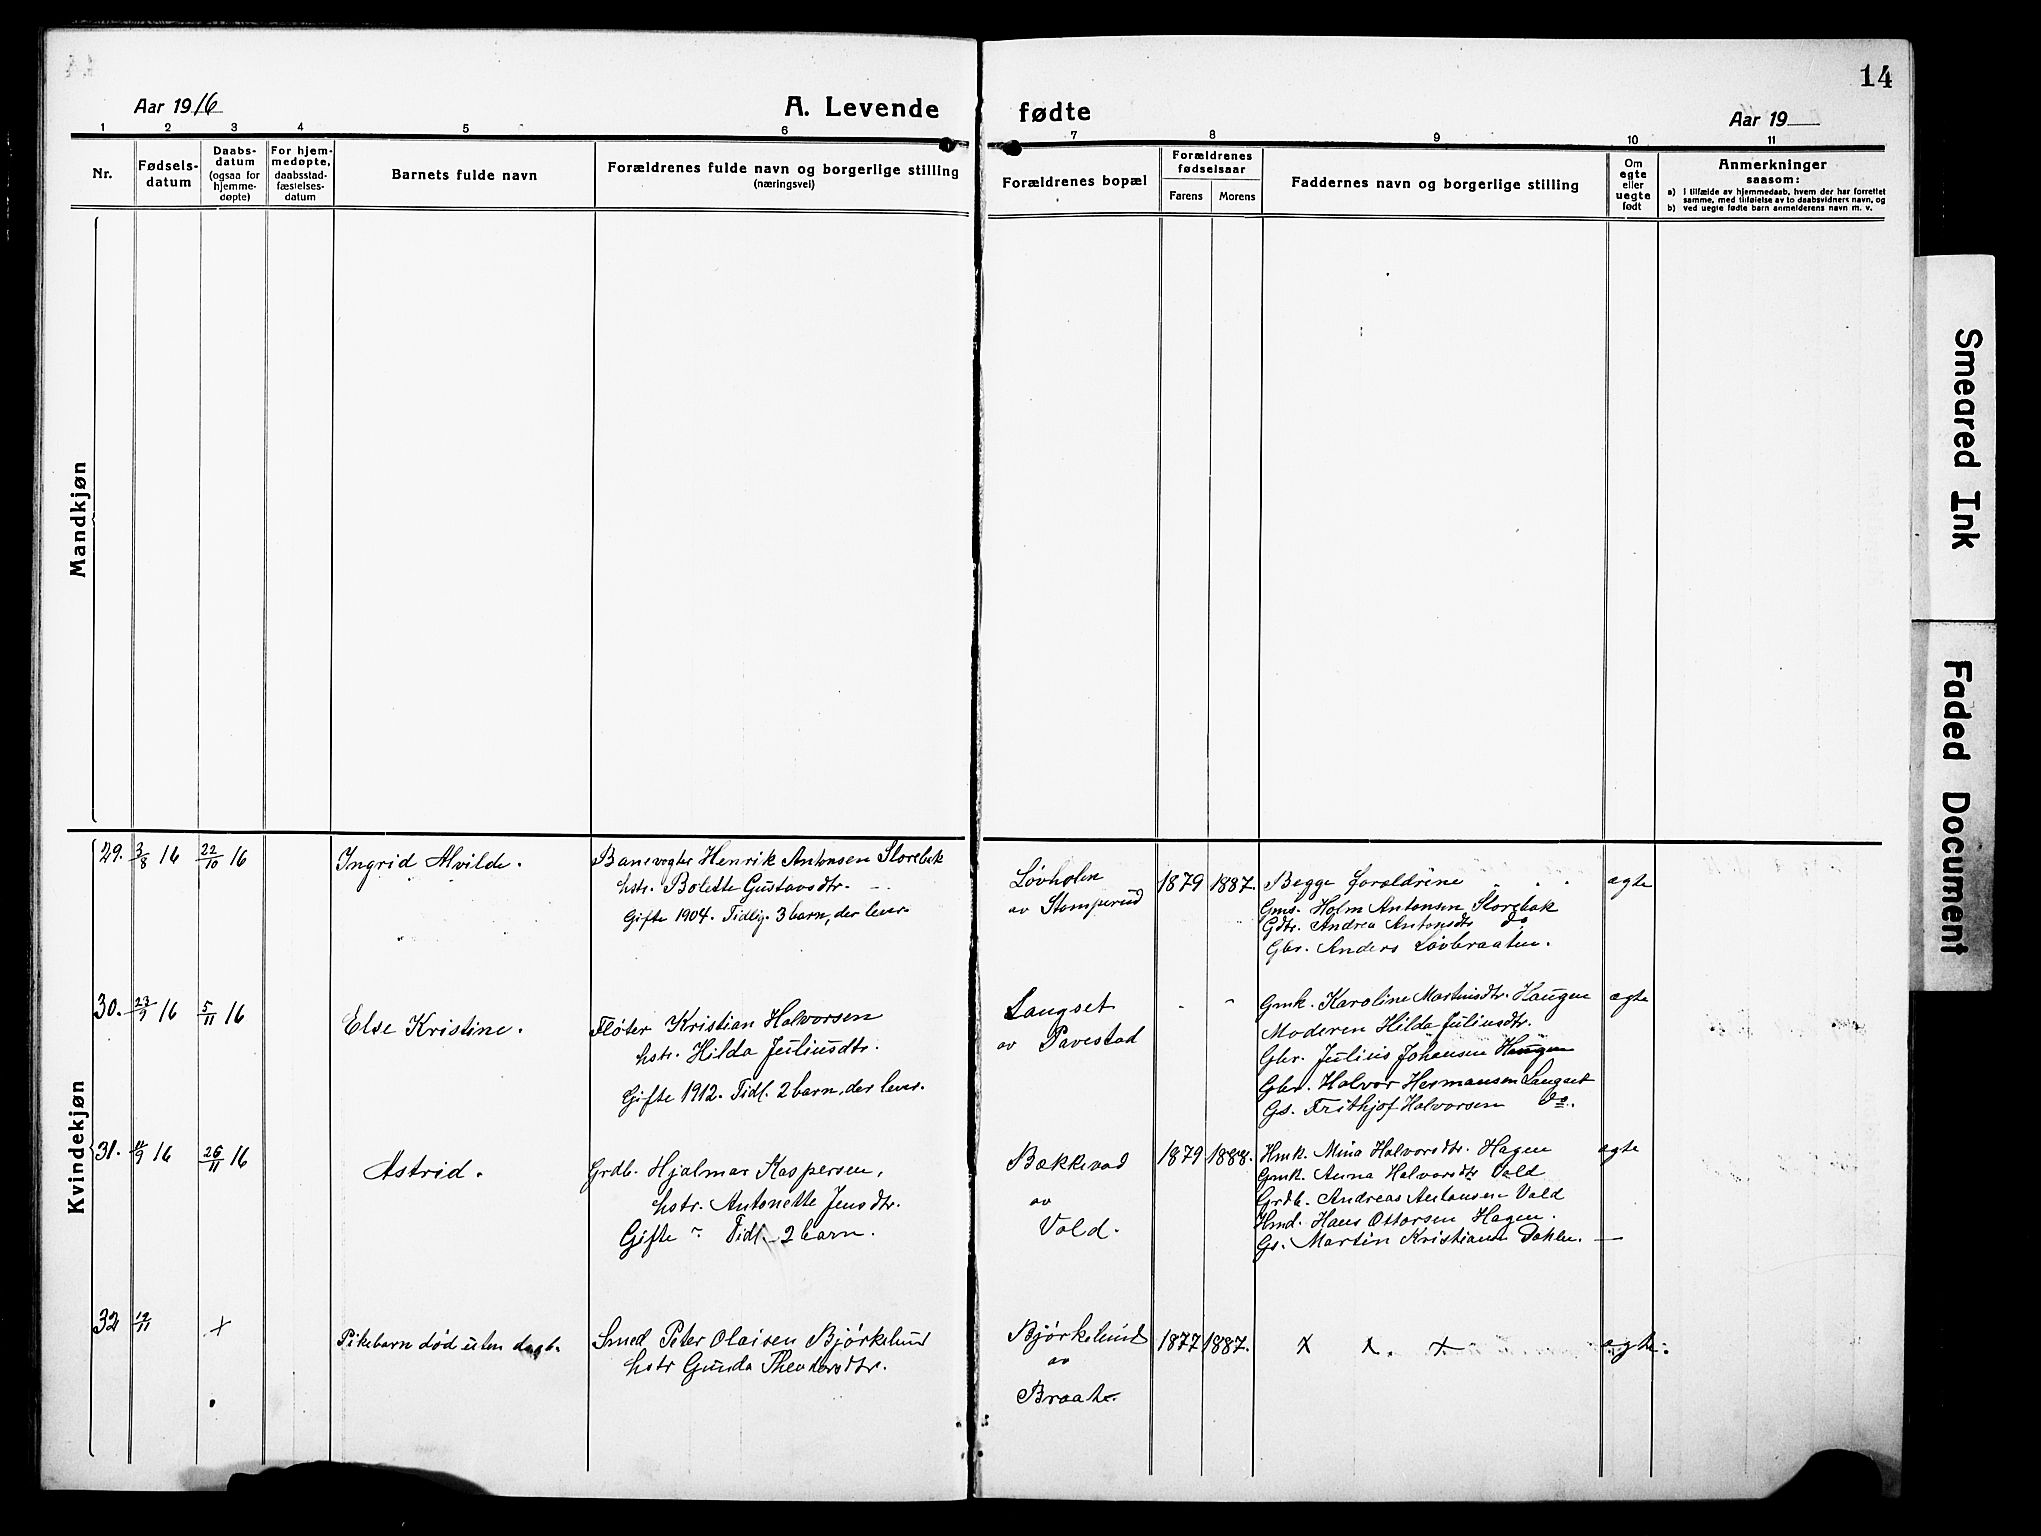 14
Aar 1916
A. Levende fødte
Aar 19
1 2 3 4 5 6 7 8 9 10 11
Nr.
Fødsels-
datum
Daabs-
datum
(ogsaa for
hjemme-
døpte)
For hjem-
medøpte,
daabsstad-
fæstelses-
datum
Barnets fulde navn
Forældrenes fulde navn og borgerlige stilling
(næringsvei)
Forældrenes bopæl
Forældrenes
fødselsaar
Farens Morens
Faddernes navn og borgerlige stilling
Om
egte
eller
uegte
født
Anmerkninger
saasom:
a) i tilfælde av hjemmedaab, hvem der har forrettet
samme, med tilføielse av to daabsvidners navn, og
b) ved uegte fødte barn anmelderens navn m. v.
Mandkjøn
Kvindekjøn
29. 3/8 16 22/10 16
Ingrid Alvilde.
Banevogter Henrik Antonsen Storebæk
hstr. Bolette Gustavsdtr.
Gifte 1904. Tidlig. 3 barn, der lever.
Løvholen
av Stomperud
1879 1887.
Begge forældrene
Gms. Holm Antonsen Storebæk
Gdtr. Andrea Antonsdtr do
Gbr. Anders Løvbraaten.
ægte
30. 23/9 16 5/11 16
Else Kristine.
Fløter Kristian Halvorsen
hstr. Hilda Juliusdtr.
Gifte 1912. Tidl. 2 barn, der lever.
Langset
av Pavestad
- -
Gmk. Karoline Martinsdtr. Haugen
Moderen Hilda Juliusdtr.
Gbr. Julius Johansen Haugen
Gbr. Halvor Hermansen Langset
Gs. Frithjof Halvorsen Do.
ægte
31. 11/9 16 26/11 16
Astrid.
Grdb. Hjalmar Kaspersen,
hstr. Antonette Jensdtr.
Gifte ~ Tidl. 2 barn.
Bækkevad
av
Vold.
1879 1888.
Hmk. Mina Halvorsdtr. Hagen
Gmk. Anna Halvorsdtr Vold
Grdb. Andreas Antonsen Vold
Hmd. Hans Ottarsen Hagen.
Gs. Martin Kristiansen Dahlen.
ægte
32 19/11 x
Pikebarn død uten daab.
Smed Peter Olaisen Bjørkelund
hstr Gunda Theodorsdtr.
Bjørkelund
av
Braate.
1877 1887.
x x. x
ægte.
Smeared Ink
Faded Document